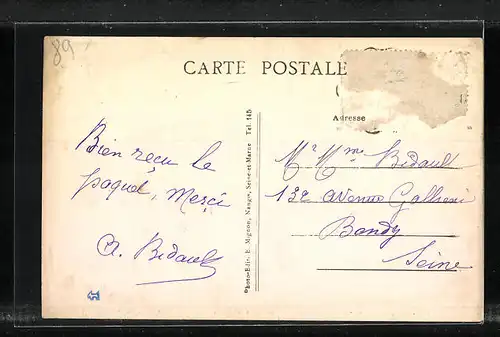 89
CARTE POSTALE
Adresse
Bien reçu le
paquet, Merci
A. Bidault
Photo-Edit. E. Mignon, Nangis, Seine-et-Marne Tel. 145
Mr Mme Bidault
132 avenue Gallieni
Bondy
Seine